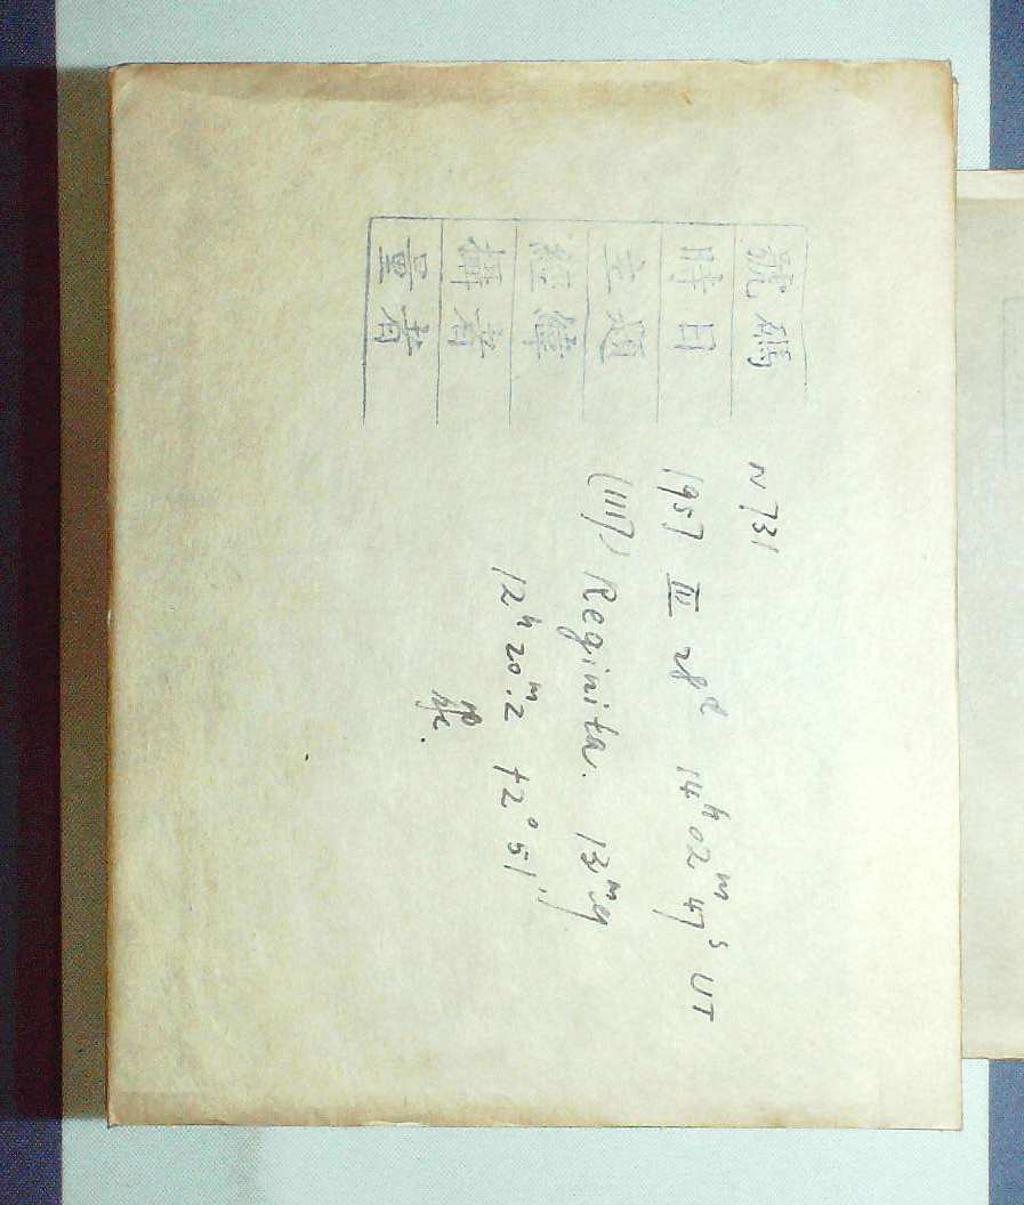 號碼 N 731
時日 1957 III 28ᵈ 14ʰ02ᵐ47ˢ UT
主題 (1117) Reginita. 13ᵐ9
經緯 12ʰ20ᵐ.2 +2°51'
攝者
量者